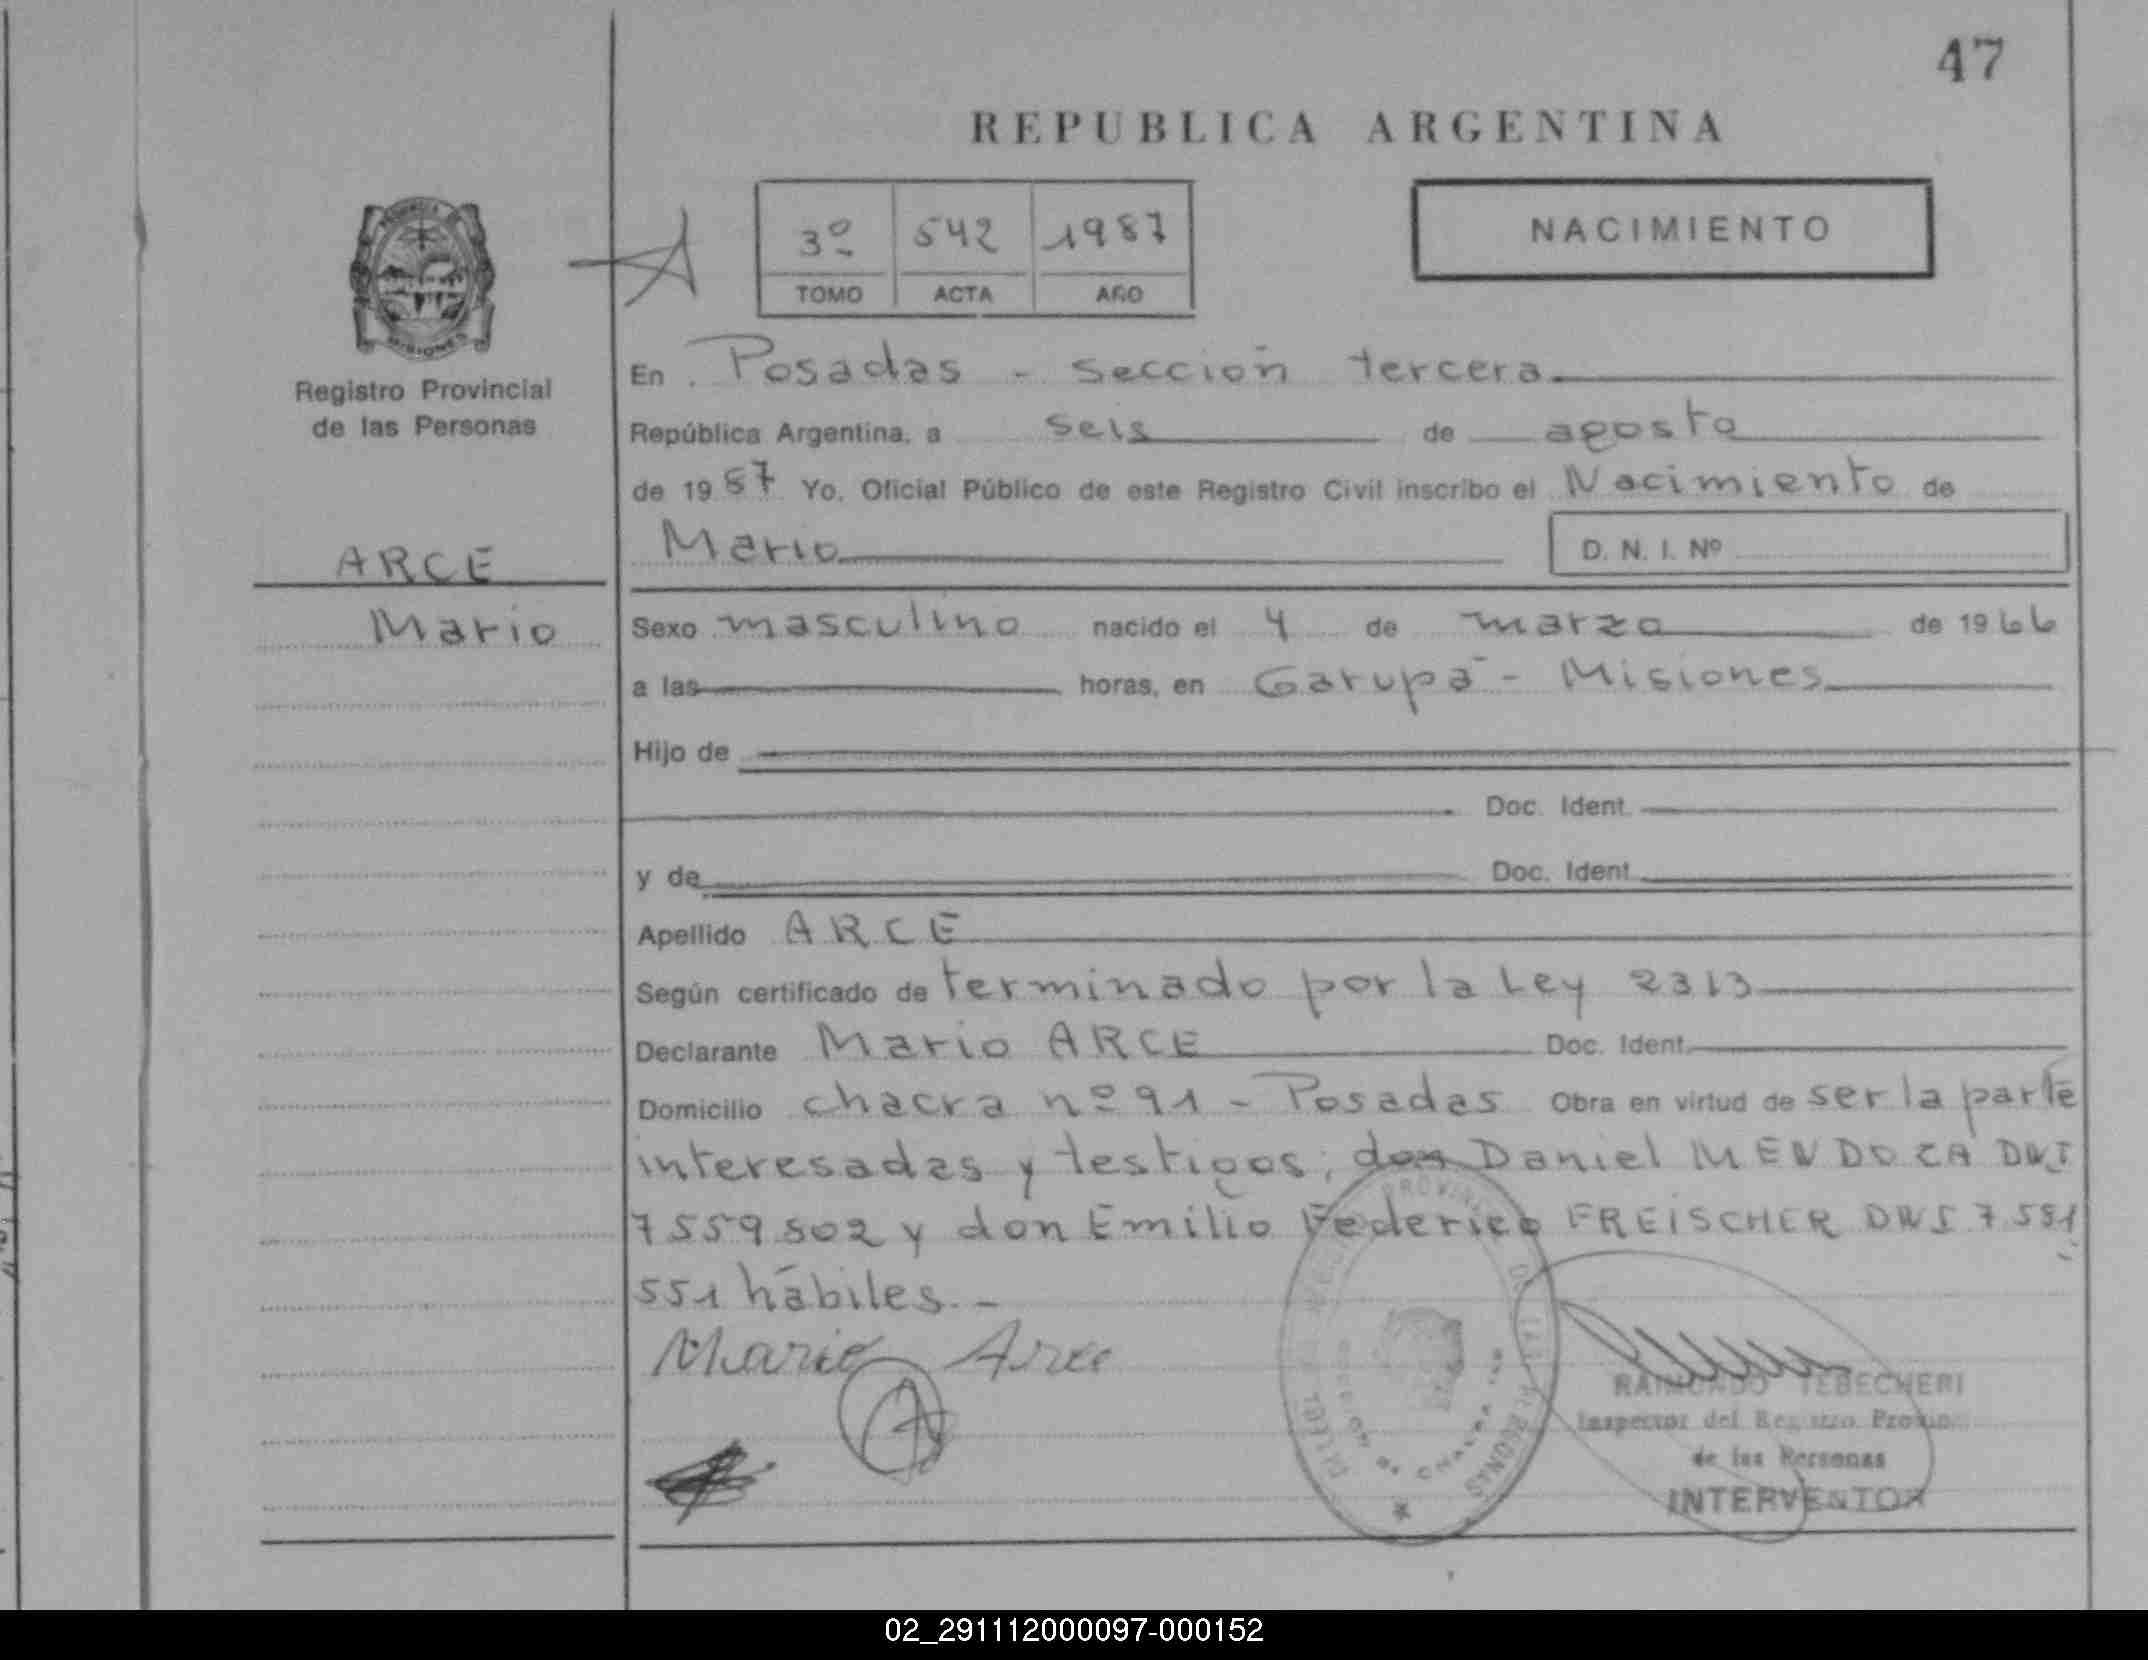 47
REPUBLICA ARGENTINA
3º 542 1987
TOMO ACTA AÑO
NACIMIENTO
Registro Provincial
de las Personas
ARCE
Mario
En Posadas - sección tercera
República Argentina, a seis de agosto
de 1987 Yo, Oficial Público de este Registro Civil inscribo el Nacimiento de
Mario D. N. I. Nº
Sexo masculino nacido el 4 de marzo de 1966
a las horas, en Garupá - Misiones
Hijo de
Doc. Ident.
y de Doc. Ident.
Apellido ARCE
Según certificado de terminado por la Ley 2313
Declarante Mario ARCE Doc. Ident.
Domicilio chacra nº 91 - Posadas Obra en virtud de ser la parte
interesadas y testigos; don Daniel MENDOZA DNI
7559502 y don Emilio Federico FREISCHER DNI 7.551
551 hábiles. -
Mario Arce
RAIMUNDO TEBECHERI
Inspector del Registro Provin.
de las Personas
INTERVENTOR
02_291112000097-000152